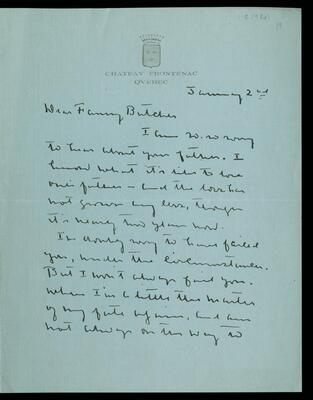 CHATEAU FRONTENAC
QUEBEC
January 2nd
Dear Fanny Butcher
I am so so sorry
to hear about your father. I
know what it's like to lose
one's father – and the loss has
not grown any less, though
it's nearly two years now.
I'm doubly sorry to have failed
you, under the circumstances.
But I won't always fail you.
When I'm a little the master
of my fate again, and am
not always on the way to